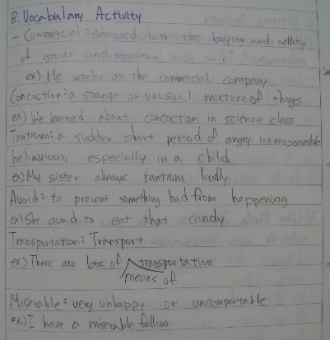 B. Vocabulary Activity
- Commercial: connected with the buying and selling
of goods and services
ex) He works at the comercial company.
Concoction: a strange or unusual mixture of things
ex) We learned about concoction in science class
Tantrum: a sudden short period of angry, unreasonable
behaviour, especially in a child
ex) My sister always tantrum loudly
Avoid: to prevent something bad from happening
ex) She avoid to eat that candy.
Transportation: Transport
ex) There are lots of transportation
means of
Miserable: very unhappy or uncomportable
ex) I have a miserable follow.